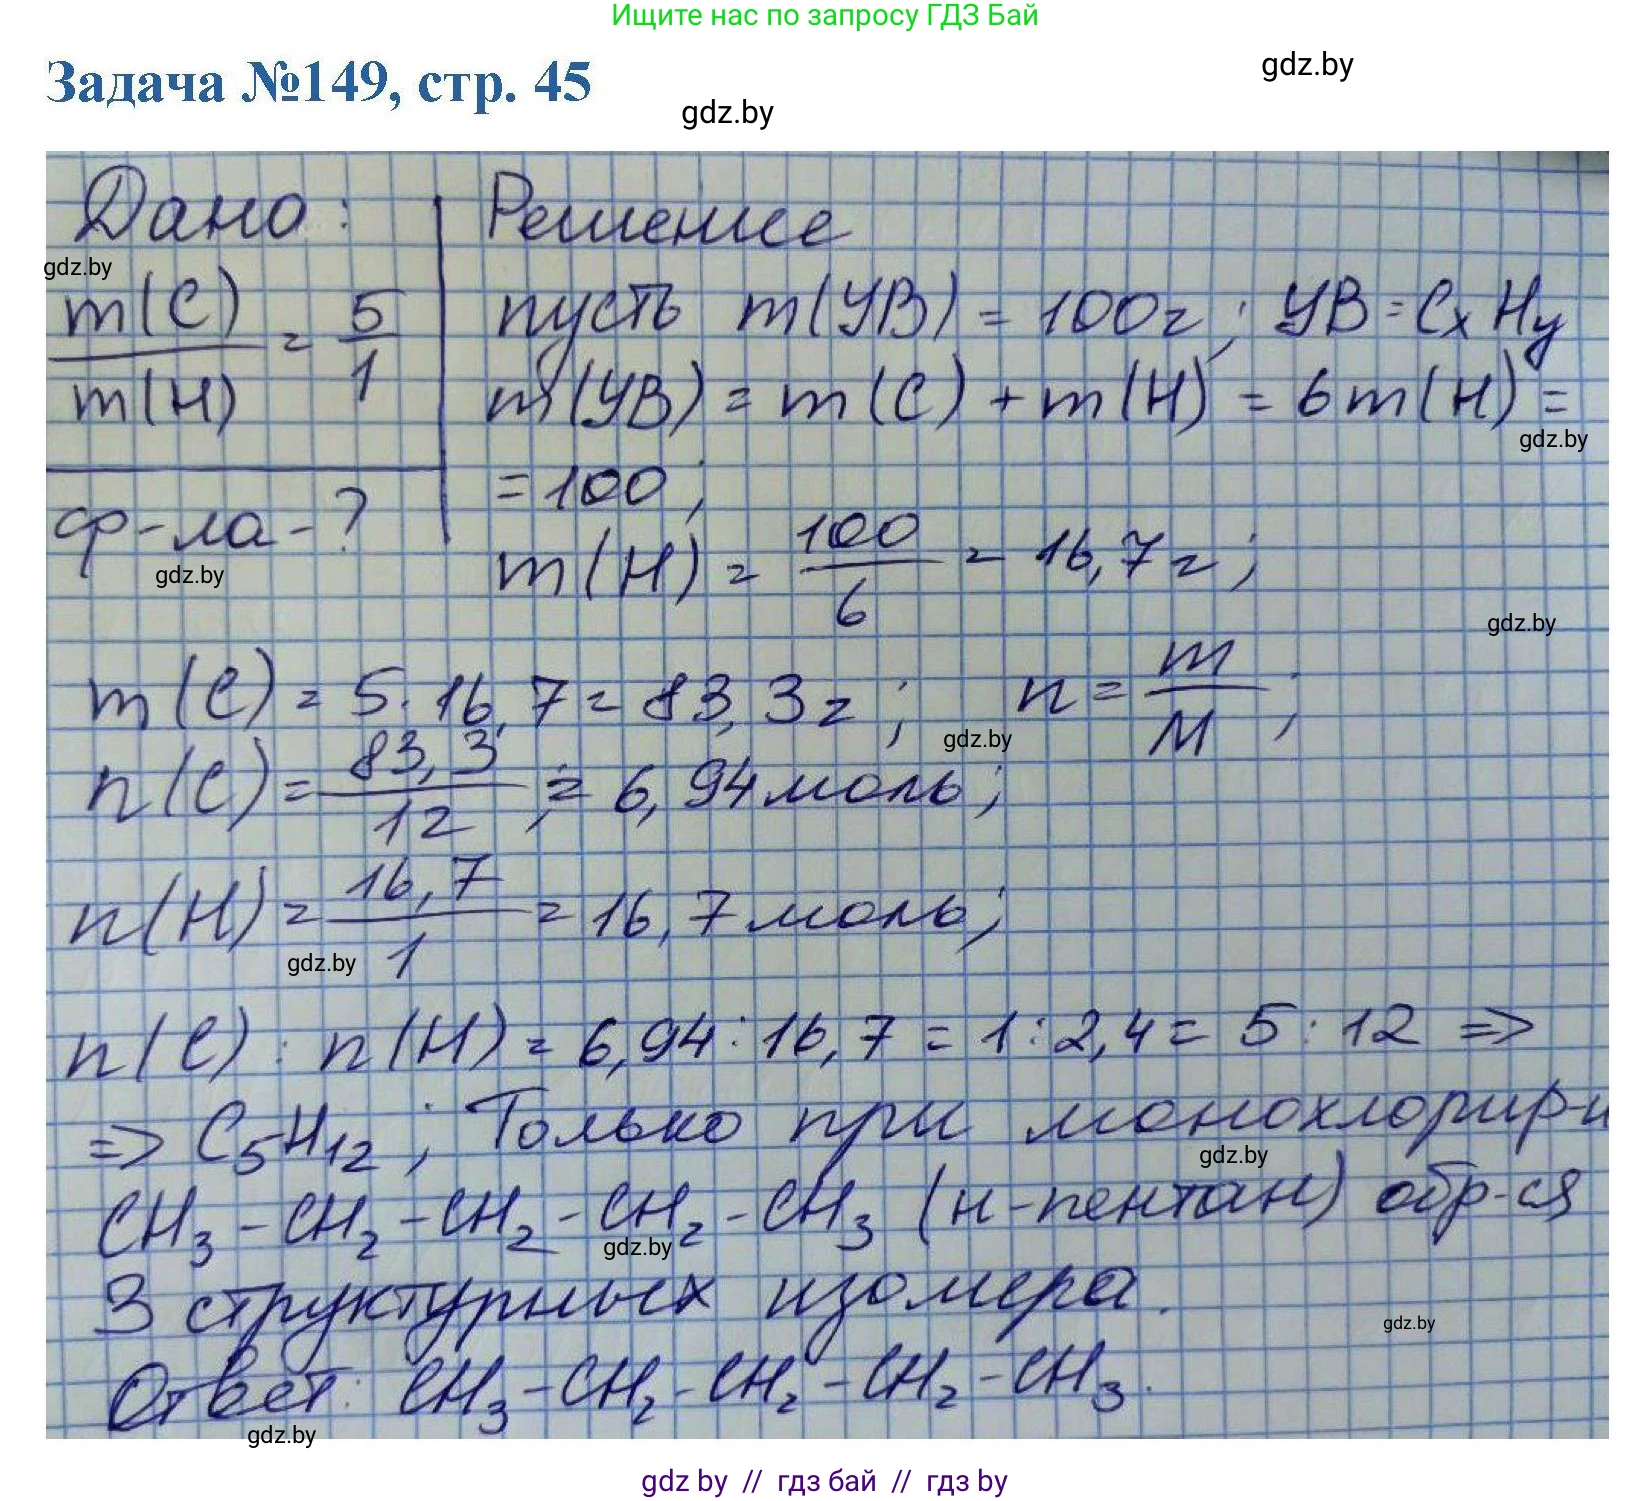 Ищите нас по запросу ГДЗ Бай
Задача №149, стр. 45
gdz.by
gdz.by
Дано:
Решение
gdz.by
m(C)/m(H) = 5/1
пусть m(УВ) = 100г; УВ = CxHy
m(УВ) = m(C) + m(H) = 6m(H) =
gdz.by
= 100;
ф-ла - ?
gdz.by
m(H) = 100/6 = 16,7г;
gdz.by
m(C) = 5·16,7 = 83,3г; n = m/M;
gdz.by
n(C) = 83,3/12 = 6,94моль;
n(H) = 16,7/1 = 16,7моль;
gdz.by
n(C) : n(H) = 6,94 : 16,7 = 1 : 2,4 = 5 : 12 =>
=> C5H12; Только при монохлорир-и
gdz.by
CH3-CH2-CH2-CH2-CH3 (н-пентан) обр-ся
gdz.by
3 структурных изомера.
gdz.by
Ответ: CH3-CH2-CH2-CH2-CH3.
gdz.by
gdz by // гдз бай // гдз by